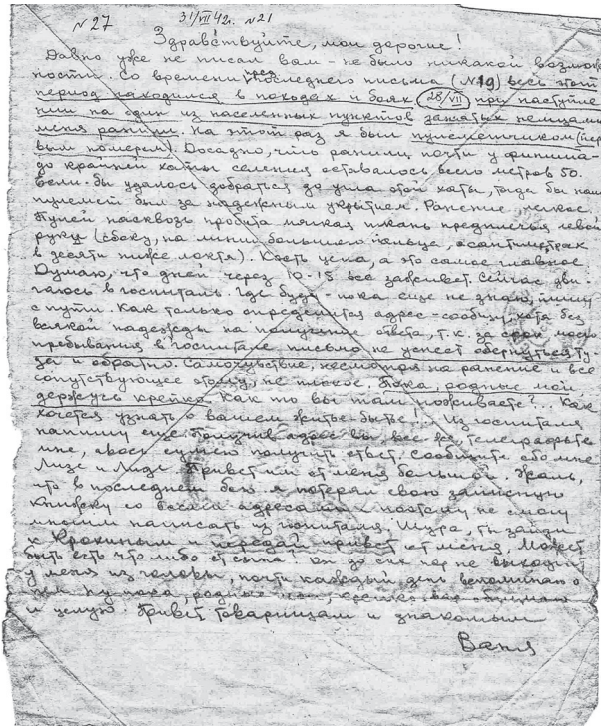 N 27 31/VII 42г. N 21
Здравствуйте, мои дорогие!
Давно уже не писал вам - не было никакой возмож-
ности. Со времени последнего письма (N 19) весь этот
период находился в походах и боях 28/VII при наступле-
нии на один из населенных пунктов занятых немцами
меня ранили. На этот раз я был пулеметчиком (пер-
вым номером). Досадно, что ранили почти у финиша -
до крайней хаты селения оставалось всего метров 50.
Если-бы удалось добраться до угла этой хаты, тогда бы наш
пулемет был за надежным укрытием. Ранение легкое.
Пулей насквозь пробита мягкая ткань предплечья левой
руки (сбоку, на линии большого пальца, сантиметрах
в десяти ниже локтя). Кость цела, а это самое главное
Думаю, что дней через 10-15 все заживет. Сейчас дви-
гаюсь в госпиталь. Где буду - пока еще не знаю, пишу
с пути. Как только определится адрес - сообщу, хотя без
всякой надежды на получение ответа, т.к. за срок моего
пребывания в госпитале письмо не успеет обернуться ту-
да и обратно. Самочувствие, несмотря на ранение и все
сопутствующее этому, не плохое. Пока, родные мои
держусь крепко. Как то вы там поживаете?... Как
хочется узнать о вашем житье-бытье!.. Из госпиталя
напишу еще. Получив адрес вы все же телеграфьте
мне, авось сумею получить ответ. Сообщите обо мне
Лизе и Лиде. Привет им от меня большой. Жаль,
что в последнем бою я потерял свою записную
книжку со всеми адресами - поэтому не смогу
многим написать из госпиталя. Шура, ты зайди
к Крокиным и передай привет от меня. Может
быть есть что либо от он до сих пор не выходит
у меня из головы, почти каждый день вспоминаю о
нем. Ну пока, родные мои, крепко вас обнимаю
и целую. Привет товарищам и знакомым
Ваня